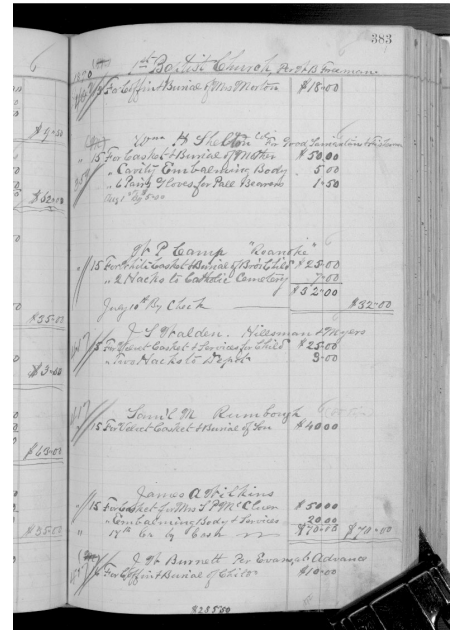 383
1st Baptist Church Per W. B. Freeman
14 For Coffin & Burial of Mrs Morton $18-00
Wm H Shelton
15 For Casket & Burial of Mother $50.00
" Cavity Embalming Body 5 00
" 6 Pairs Gloves for Pall Bearers 1-50
W. P. Camp "Roanoke"
15 For White Casket & Burial of Bro's Child $25-00
" 2 Hacks to Catholic Cemetery 7-00
$32-00
July 10th By Check $32-00
J. S. Walden. Hillsman & Myers
15 For Velvet Casket & Services for Child $25-00
" Two Hacks to Depot 3-00
Saml M Rumbough
15 For Velvet Casket & Burial of Son $40.00
James A Wilkins
15 For Casket for Mrs S P McCluer $50.00
" Embalming Body & Services 20.00
" 17th Cr by Cash $70-00
J. W. Burnett Per Advance
For Coffin & Burial of Child $10-00
$9-50
$35-00
$3-00
$63-00
$35-00